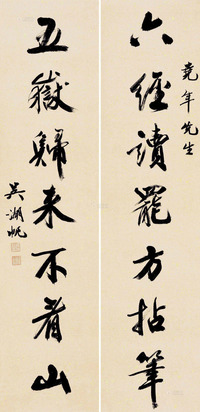 堯年先生
六經讀罷方拈筆
五嶽歸来不看山
吴湖帆